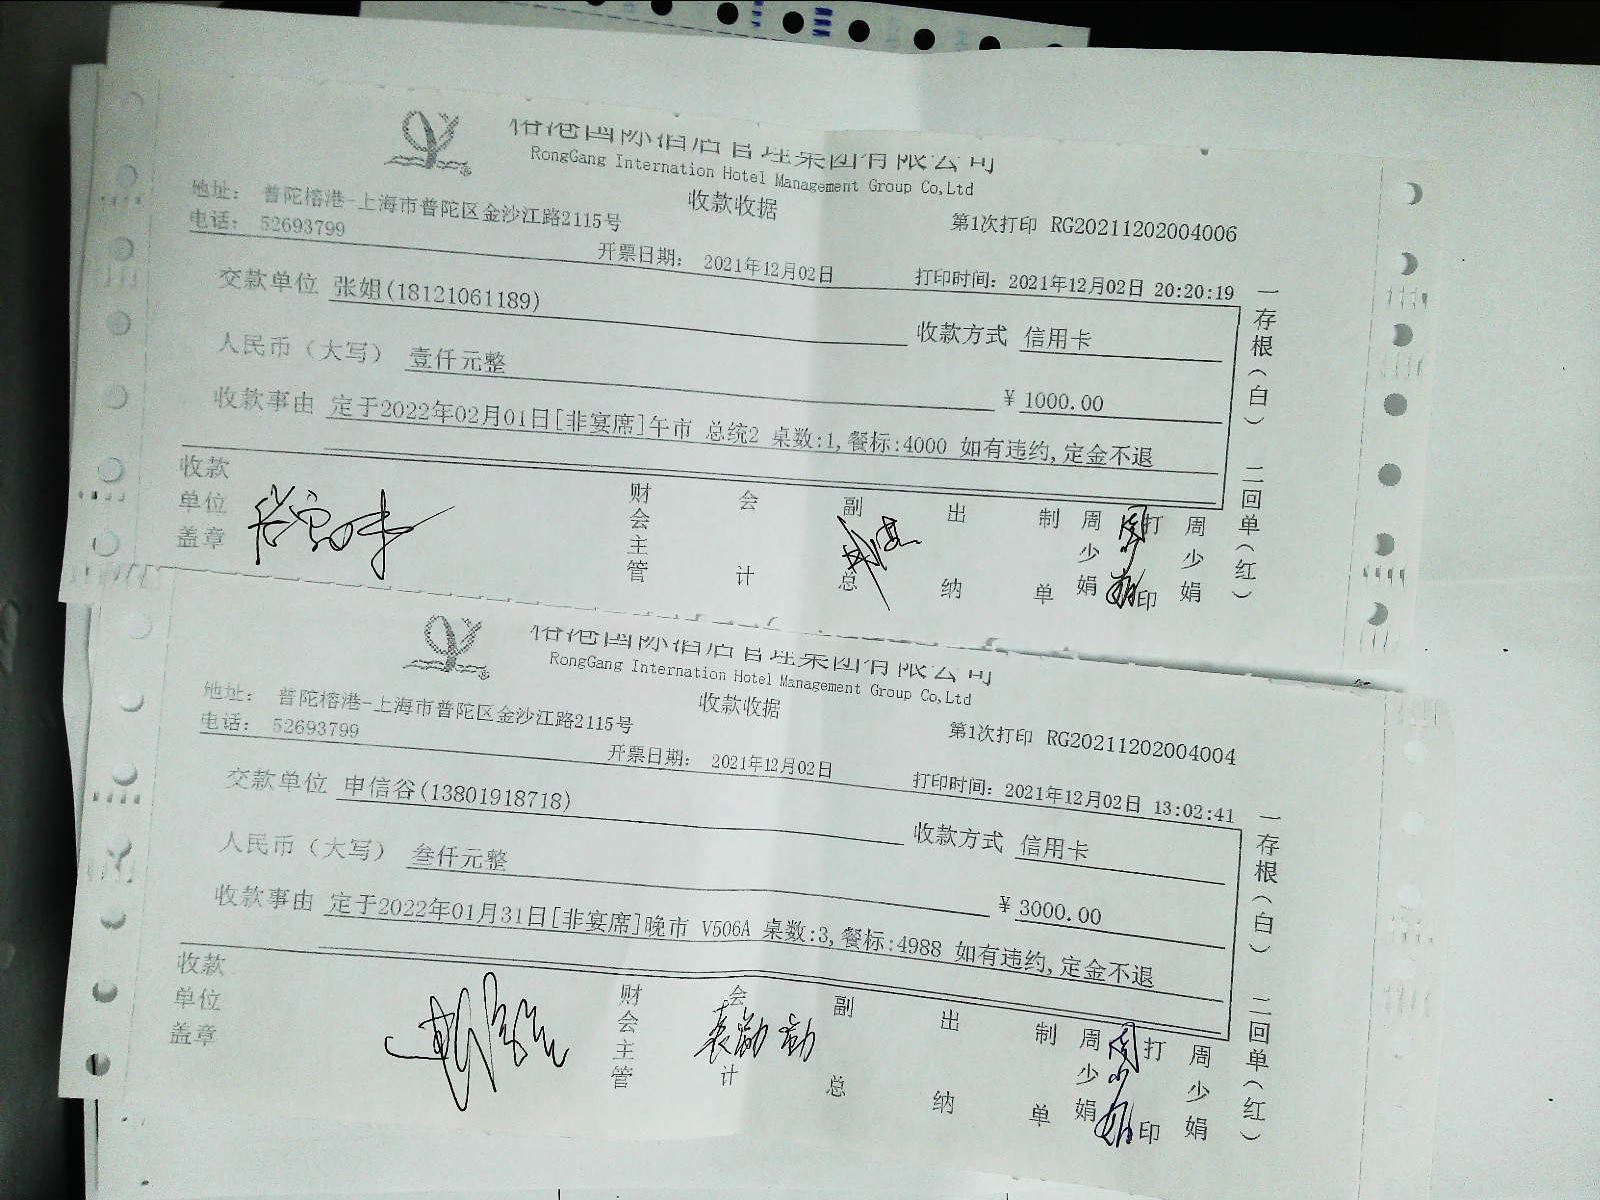 榕港国际酒店管理集团有限公司
RongGang Internation Hotel Management Group Co,Ltd
收款收据
地址: 普陀榕港-上海市普陀区金沙江路2115号
电话: 52693799
第1次打印 RG20211202004006
开票日期: 2021年12月02日
打印时间: 2021年12月02日 20:20:19
交款单位 张姐(18121061189)
收款方式 信用卡
人民币(大写) 壹仟元整
¥ 1000.00
收款事由 定于2022年02月01日[非宴席]午市 总统2 桌数:1,餐标:4000 如有违约,定金不退
收款单位盖章
财会主管
会计
副总
出纳
制单 周少娟
周少娟
打印 周少娟
一存根(白) 二回单(红)
榕港国际酒店管理集团有限公司
RongGang Internation Hotel Management Group Co,Ltd
收款收据
地址: 普陀榕港-上海市普陀区金沙江路2115号
电话: 52693799
第1次打印 RG20211202004004
开票日期: 2021年12月02日
打印时间: 2021年12月02日 13:02:41
交款单位 申信谷(13801918718)
收款方式 信用卡
人民币(大写) 叁仟元整
¥ 3000.00
收款事由 定于2022年01月31日[非宴席]晚市 V506A 桌数:3,餐标:4988 如有违约,定金不退
收款单位盖章
财会主管
会计
副总
出纳
制单 周少娟
周少娟
打印 周少娟
一存根(白) 二回单(红)